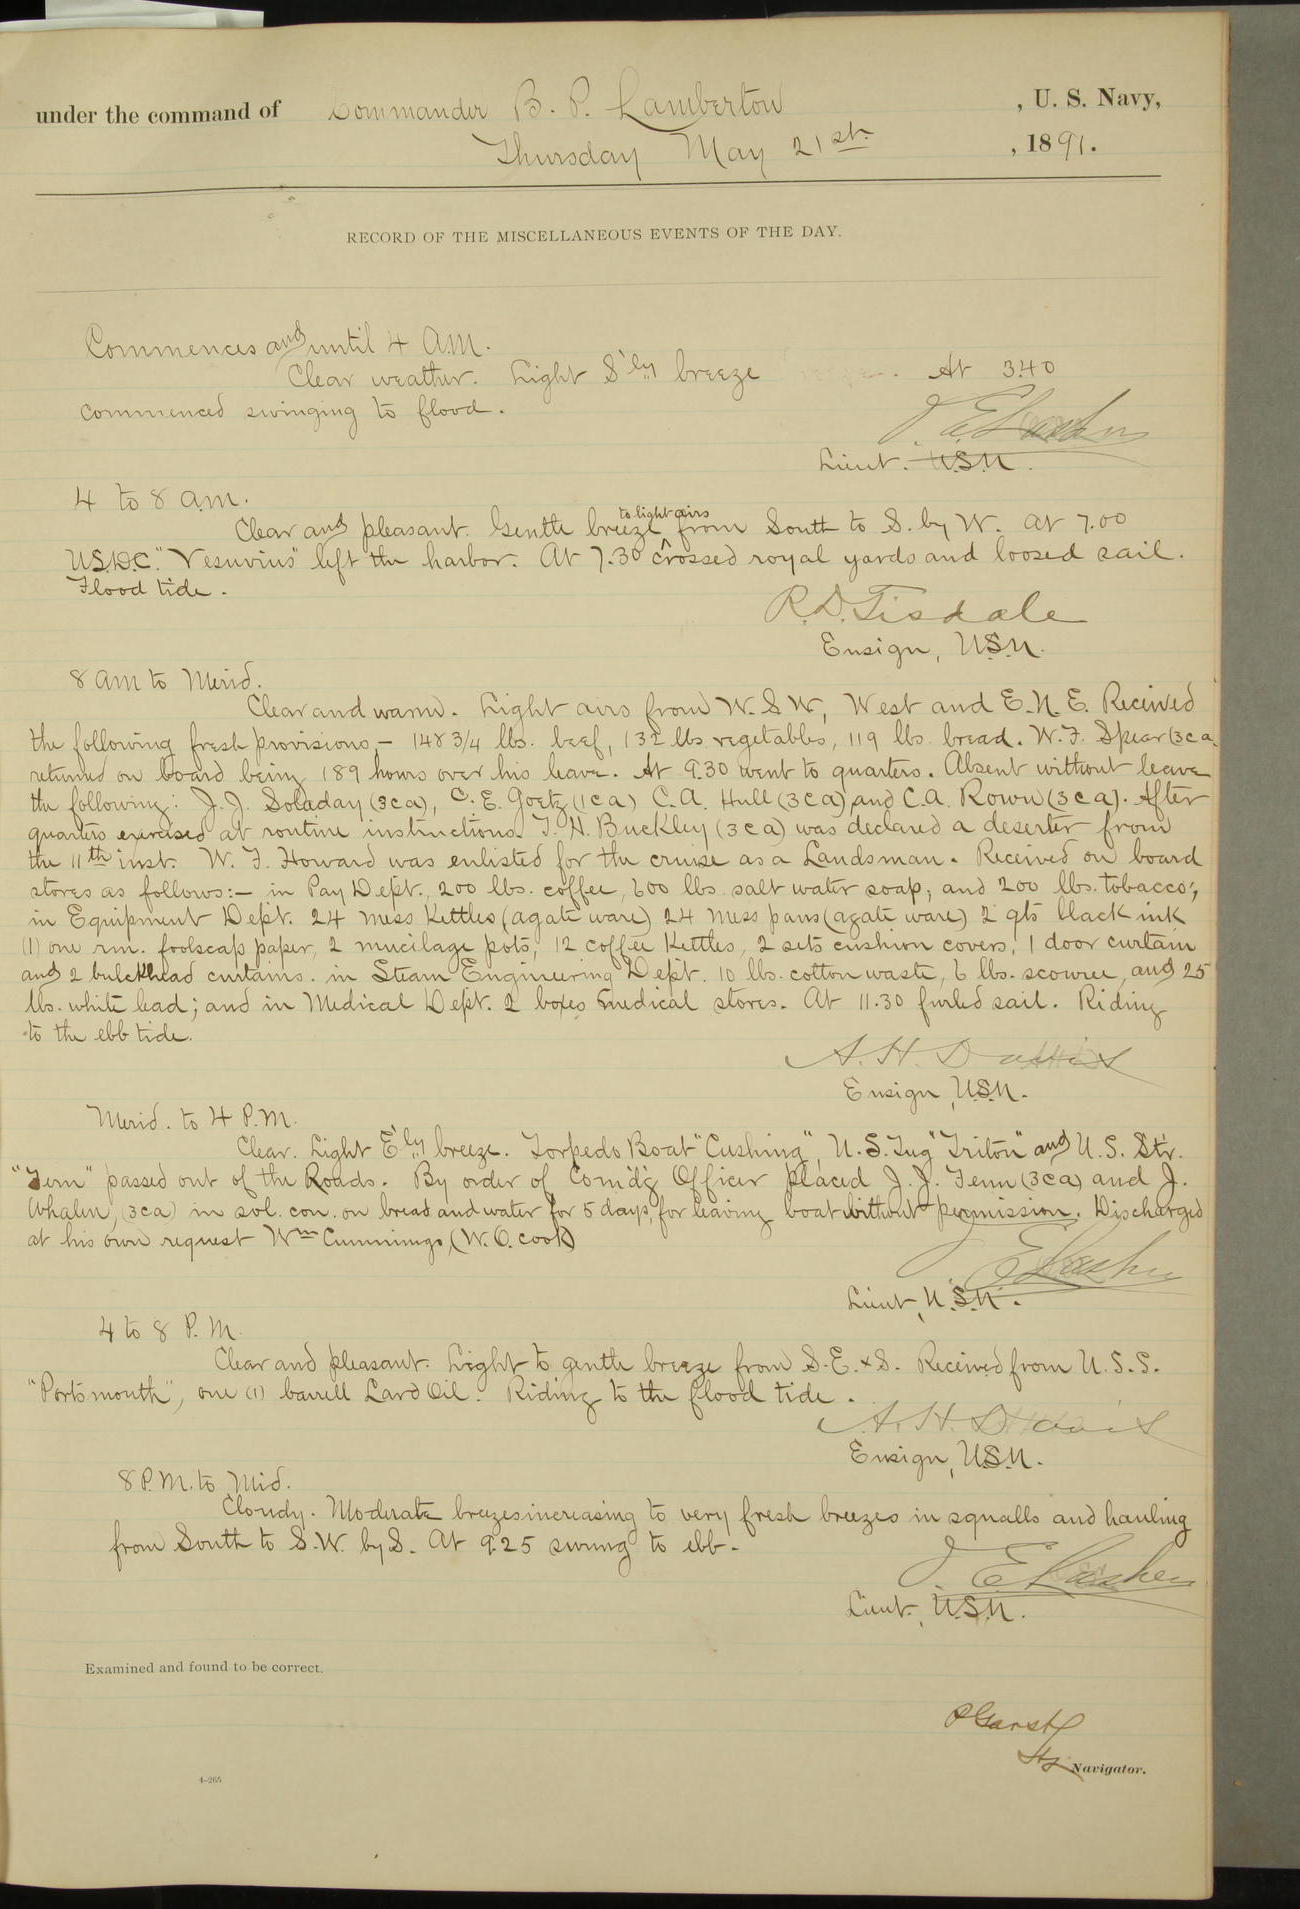 under the command of Commander B. P. Lamberton , U. S. Navy,
Thursday May 21st. , 1891.
RECORD OF THE MISCELLANEOUS EVENTS OF THE DAY.
Commences and until 4 A.M.
Clear weather. Light S'ly breeze . At 3.40
commenced swinging to flood.
J. E.
Lieut. U.S.N.
4 to 8 a.m.
Clear and pleasant. Gentle breeze to light airs from South to S. by W. At 7.00
U.S.D.C. "Vesuvius" left the harbor. At 7.30 crossed royal yards and loosed sail.
Flood tide.
R. D. Tisdale
Ensign, U.S.N.
8 am to Merid.
Clear and warm. Light airs from W.S.W, West and E.N.E. Received
the following fresh provisions – 148 3/4 lbs. beef, 132 lbs vegetables, 119 lbs. bread. W. F. Spear (3ca)
returned on board being 189 hours over his leave. At 9.30 went to quarters. Absent without leave
the following: J. J. Soladay (3ca), C. E. Goetz (1ca) C. A. Hull (3ca), and C. A. Rowe (3ca). After
quarters exercised at routine instructions. T. H. Buckley (3ca) was declared a deserter from
the 11th inst. W. F. Howard was enlisted for the cruise as a Landsman. Received on board
stores as follows:– in Pay Dept., 200 lbs. coffee, 600 lbs. salt water soap, and 200 lbs. tobacco;
in Equipment Dept. 24 mess kettles (agate ware) 24 mess pans (agate ware) 2 qts black ink
(1) one rm. foolscap paper, 2 mucilage pots, 12 coffee kettles, 2 sets cushion covers, 1 door curtain
and 2 bulckhead curtains. in Steam Engineering Dept. 10 lbs. cotton waste, 6 lbs. scouree, and 25
lbs. white lead; and in Medical Dept. 2 boxes medical stores. At 11.30 furled sail. Riding
to the ebb tide.
A. H. Davis
Ensign, U.S.N.
Merid. to 4 P.M.
Clear. Light E'ly breeze. Torpedo Boat "Cushing", U.S. Tug "Triton" and U.S. Str.
"Fern" passed out of the Roads. By order of Com'd'g Officer placed J. J. Fenn (3ca) and J.
Whalen, (3ca) in sol. con. on bread and water for 5 days, for leaving boat without permission. Discharged
at his own request Wm Cummings, (W. O. cook)
J. E.
Lieut, U.S.N.
4 to 8 P.M.
Clear and pleasant. Light to gentle breeze from S.E. & S. Received from U.S.S.
"Portsmouth", one (1) barrell Lard Oil. Riding to the flood tide.
A. H. Davis
Ensign, U.S.N.
8 P.M. to Mid.
Cloudy. Moderate breezes increasing to very fresh breezes in squalls and hauling
from South to S.W. by S. At 9.25 swung to ebb.
J. E.
Lieut., U.S.N.
Examined and found to be correct.
P Garst
Navigator.
4-265